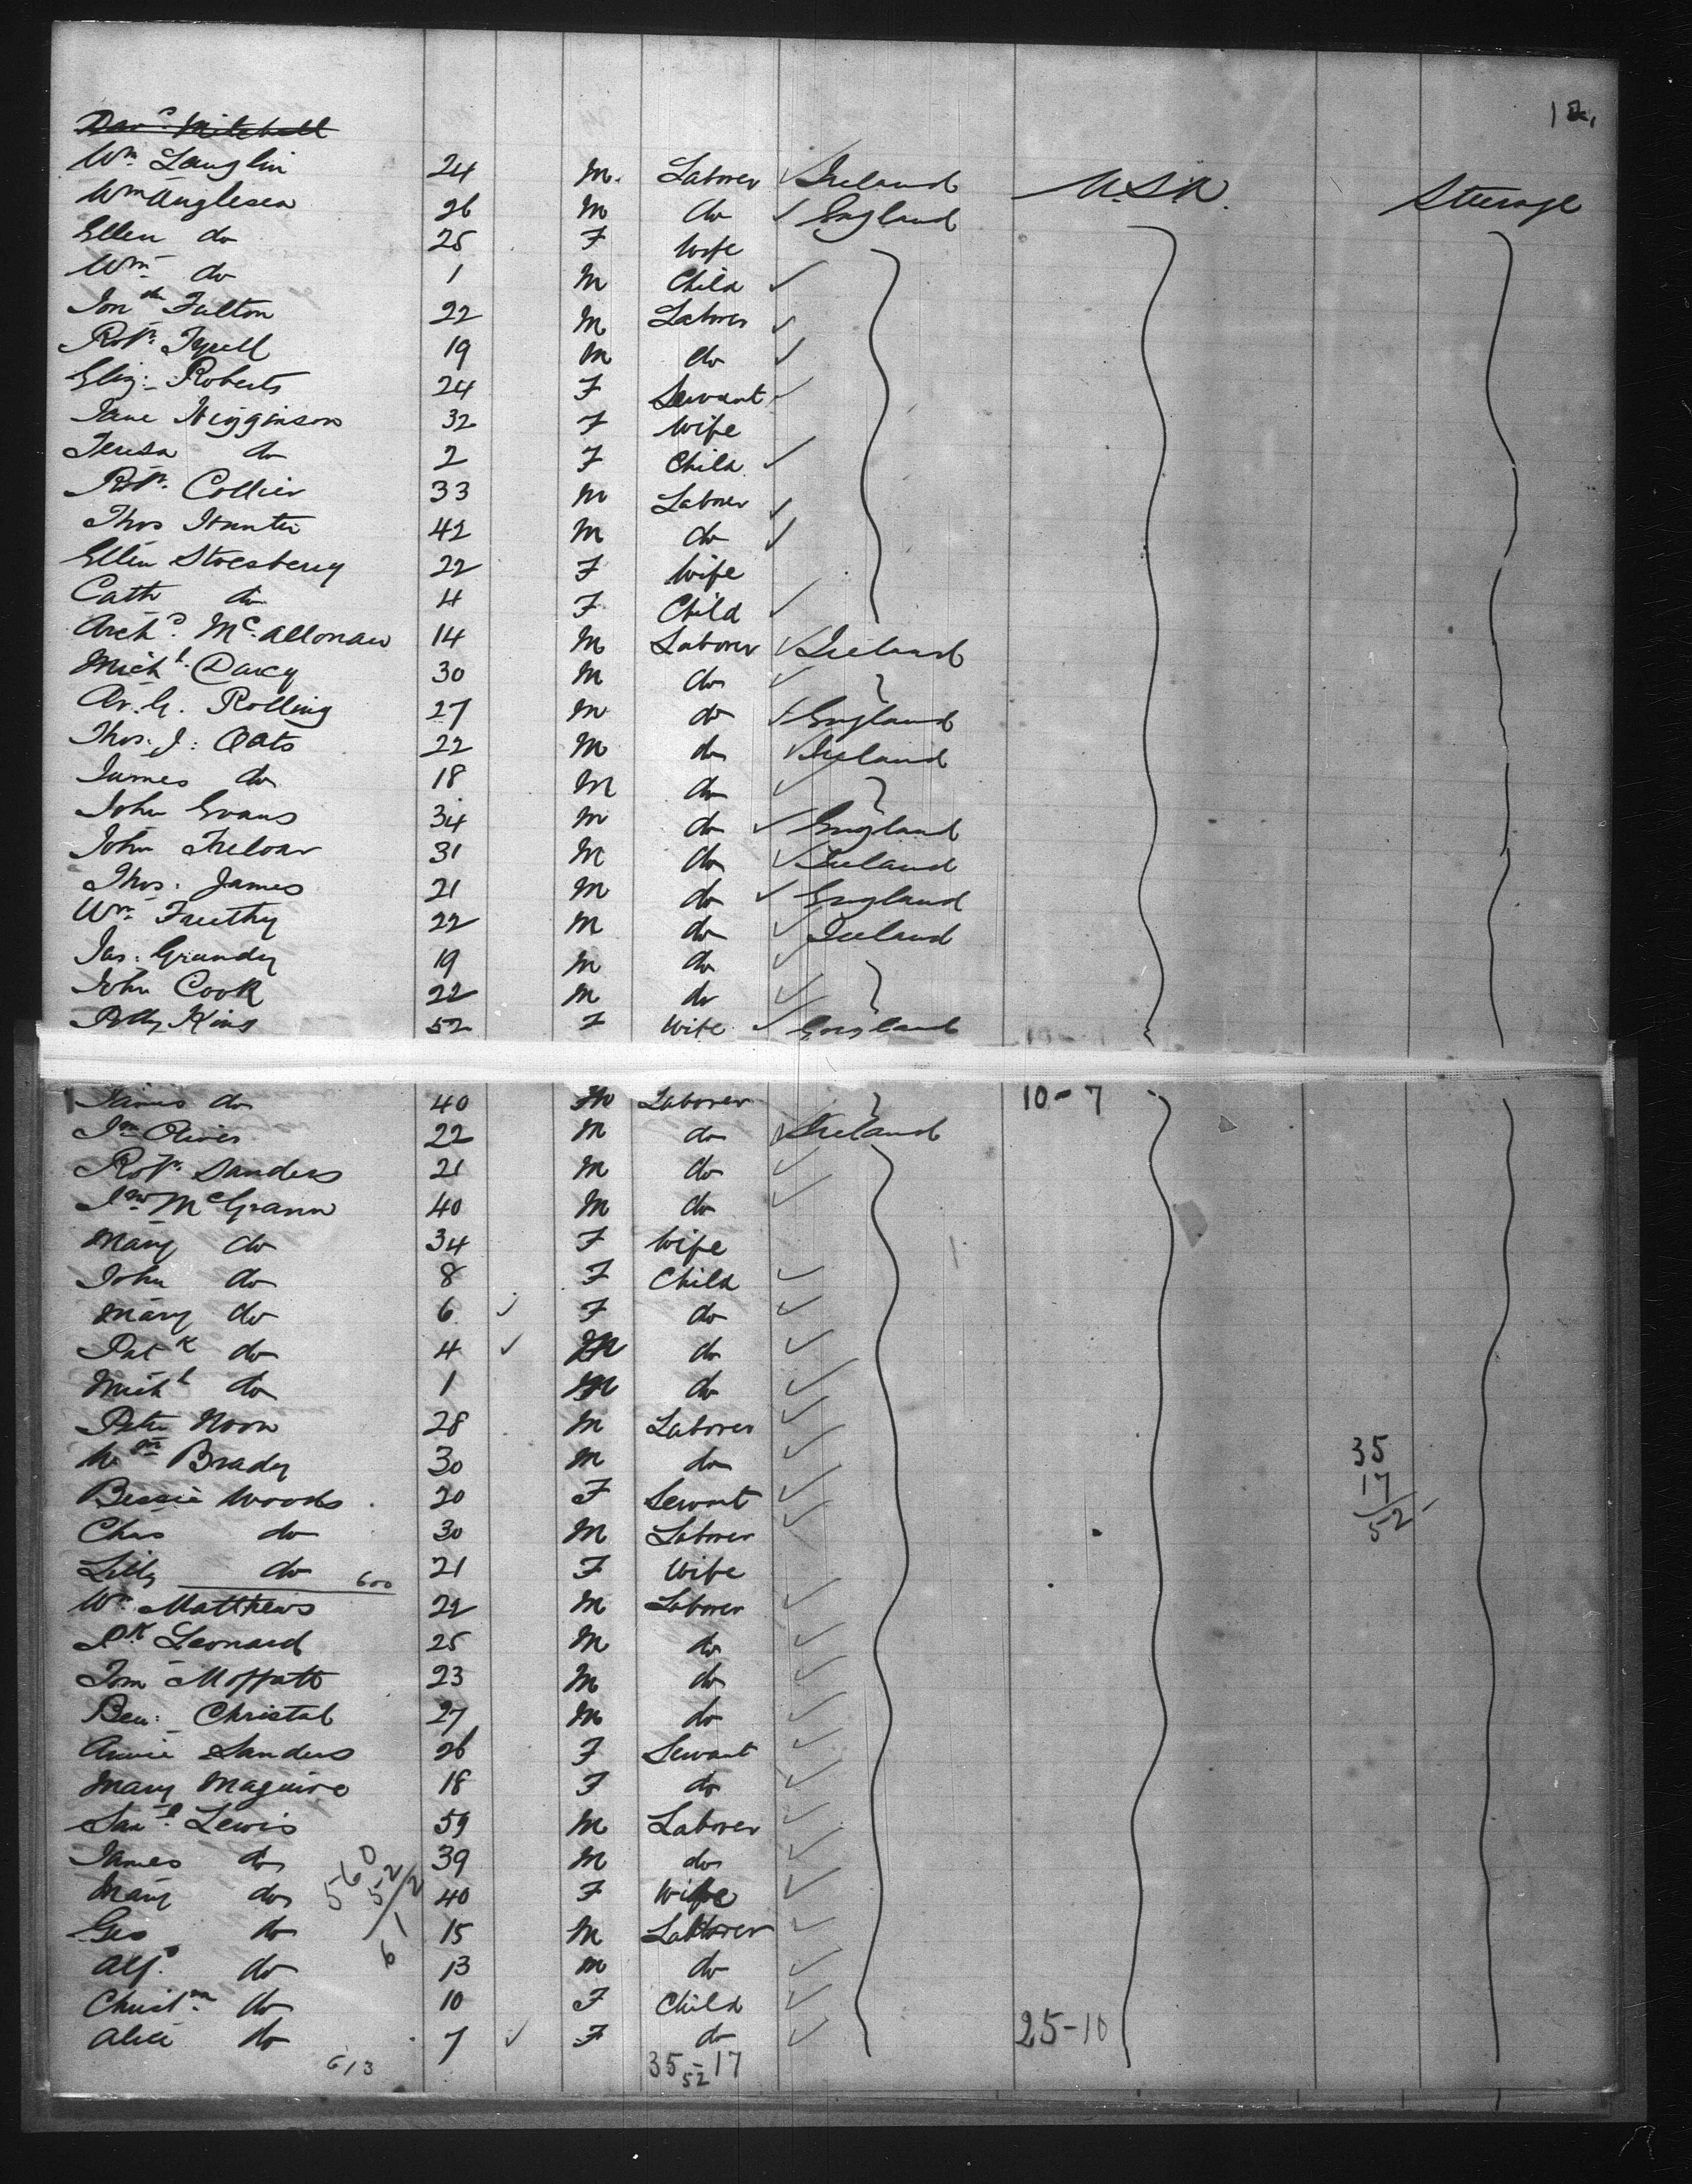 12,
Dav<sup>d</sup> Mitchell
Wm Langlin 24 M. Laborer Ireland U.S.A. Steerage
Wm Anglesea 26 M do England
Ellen do 25 F Wife
Wm do 1 M Child
Fulton 22 M Laborer
Robt. Tyrell 19 M do
Eliz: Roberts 24 F Servant
Jane Higginson 32 F Wife
Teresa do 2 F Child
Robt. Collier 33 M Laborer
Thos Hunter 42 M do
Ellen Stoesberry 22 F Wife
Cath do 4 F Child
Archd. 14 M Laborer Ireland
Michl. Darcy 30 M do
Rolling 27 M do England
Thos. J: Oats 22 M do Ireland
James do 18 M do
John Evans 34 M do England
John Treloar 31 M do Ireland
Thos. James 21 M do England
Wm 22 M do Ireland
Jas: Grundy 19 M do
John Cook 22 M do
Polly King 52 F Wife England
James do 40 M Laborer 10-7
Jn Oliver 22 M do Ireland
Robt. Sanders 21 M do
Jno McGrann 40 M do
Mary do 34 F Wife
John do 8 F Child
Mary do 6 F do
Patk do 4 M do
Michl do 1 M do
Peter Noon 28 M Laborer
Wm Brady 30 M do
35
17
52
Bessie Woods 20 F Servant
Chas do 30 M Laborer
Lilly do 600 21 F Wife
Wm. Matthews 22 M Laborer
Pk Leonard 25 M do
Tom Moffatt 23 M do
Ben: Christal 27 M do
Annie Sanders 26 F Servant
Mary Maguire 18 F do
Saml. Lewis 59 M Laborer
James do 39 M do
560
52
612
Mary do 40 F Wife
Geo do 15 M Laborer
Alfd. do 13 M do
Christna do 10 F Child
Alice do 7 F do 25-10
613 35 - 17
52